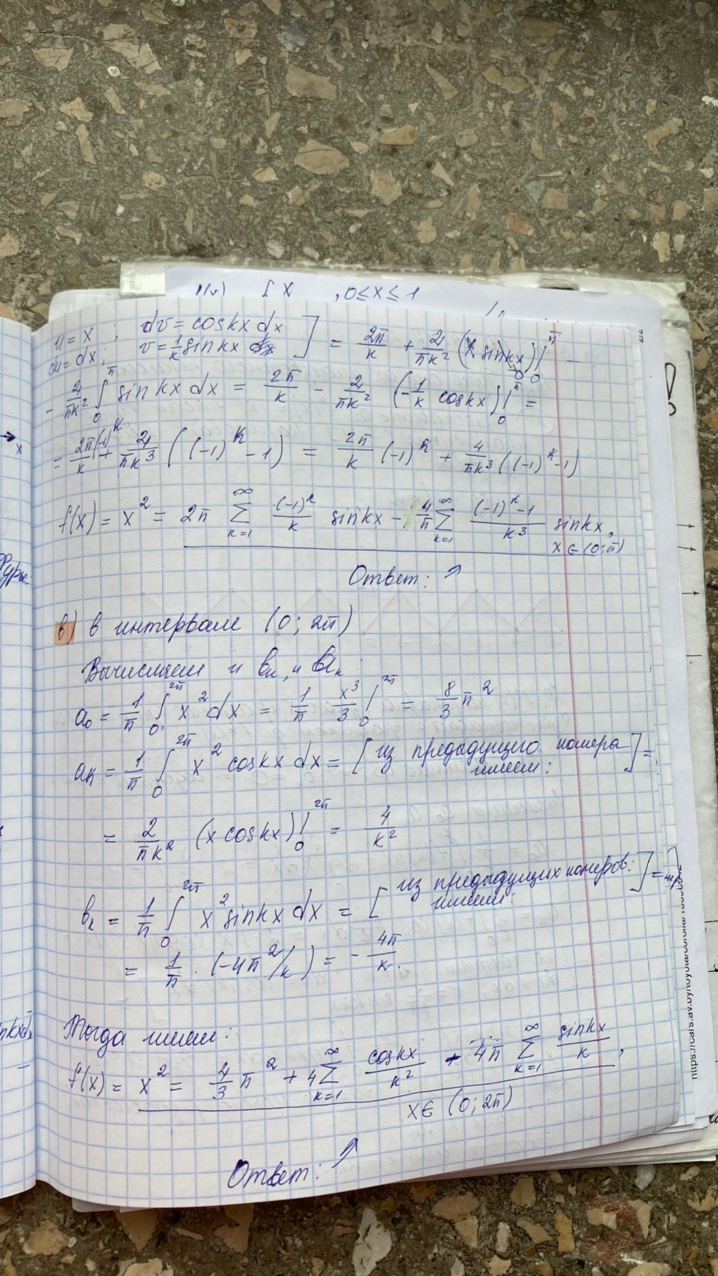 [ x , 0 ≤ x ≤ 1
u = x ; dv = coskx dx
du = dx ; v = 1/k sinkx ] = 2π/k + 2/πk² (x sinkx)|₀^π −
− 2/πk² ∫₀^π sinkx dx = 2π/k − 2/πk² (−1/k coskx)|₀^π =
= 2π/k (-1)^k + 2/πk³ ((-1)^k − 1) = 2π/k (-1)^k + 4/πk³ ((-1)^k − 1)
f(x) = x² = 2π ∑_{k=1}^∞ (-1)^k/k sinkx − 4/π ∑_{k=1}^∞ ((-1)^k − 1)/k³ sinkx,
x ∈ (0; π)
Ответ: ↑
в) в интервале (0; 2π)
Вычисляем и bₖ, и aₖ
a₀ = 1/π ∫₀^{2π} x² dx = 1/π x³/3 |₀^{2π} = 8/3 π²
aₖ = 1/π ∫₀^{2π} x² coskx dx = [из предыдущего номера имеем:] =
= 2/πk² (x coskx)|₀^{2π} = 4/k²
bₖ = 1/π ∫₀^{2π} x² sinkx dx = [из предыдущих номеров имеем:] =
= 1/π · (−4π²/k) = − 4π/k
Тогда имеем:
f(x) = x² = 4/3 π² + 4 ∑_{k=1}^∞ coskx/k² − 4π ∑_{k=1}^∞ sinkx/k ,
x ∈ (0; 2π)
Ответ: ↑